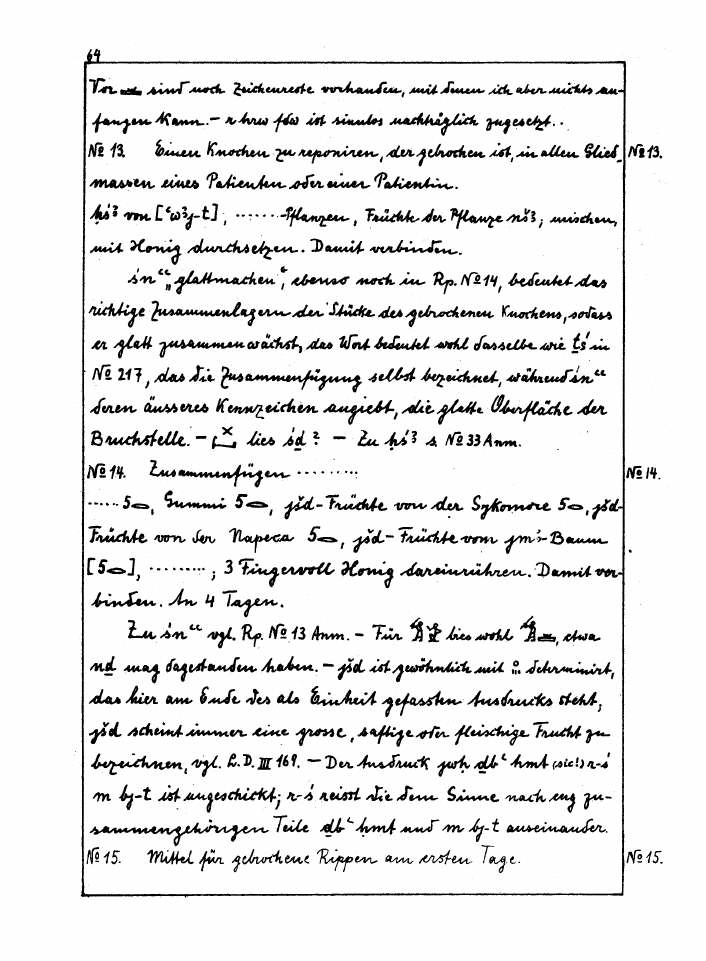 64
Vor sind noch Zeichenreste vorhanden, mit denen ich aber nichts an-
fangen kann. – r hrw fdw ist sinnlos nachträglich zugesetzt..
№ 13. Einen Knochen zu reponiren, der gebrochen ist, in allen Glied- № 13.
massen eines Patienten oder einer Patientin.
ḥsꜣ von [ꜥwꜣj-t], ·······-Pflanzen, Früchte der Pflanze nšꜣ; mischen,
mit Honig durchsetzen. Damit verbinden.
śnꜥꜥ „glattmachen“, ebenso noch in Rp. № 14, bedeutet das
richtige Zusammenlagern der Stücke des gebrochenen Knochens, sodass
er glatt zusammenwächst, das Wort bedeutet wohl dasselbe wie ṯś in
№ 217, das die Zusammenfügung selbst bezeichnet, während śnꜥꜥ
deren äusseres Kennzeichen angiebt, die glatte Oberfläche der
Bruchstelle. – lies śḏ ? – Zu ḥśꜣ s. № 33 Anm.
№ 14. Zusammenfügen ········· № 14.
····· 5, Gummi 5, jšd-Früchte von der Sykomore 5, jšd-
Früchte von der Napeca 5, jšd-Früchte vom jmꜣ-Baum
[5], ·········; 3 Fingervoll Honig dareinrühren. Damit ver-
binden. An 4 Tagen.
Zu śnꜥꜥ vgl. Rp. № 13 Anm. – Für lies wohl, etwa
nḏ mag dagestanden haben. – jšd ist gewöhnlich mit determinirt,
das hier am Ende des als Einheit gefassten Ausdrucks steht,
jšd scheint immer eine grosse, saftige oder fleischige Frucht zu
bezeichnen, vgl. L. D. III 169. – Der Ausdruck jwḥ ḏbꜥ hmt (sic!) r-ś
m bj-t ist ungeschickt; r-ś reisst die dem Sinne nach eng zu-
sammengehörigen Teile ḏbꜥ hmt und m bj-t auseinander.
№ 15. Mittel für gebrochene Rippen am ersten Tage. № 15.